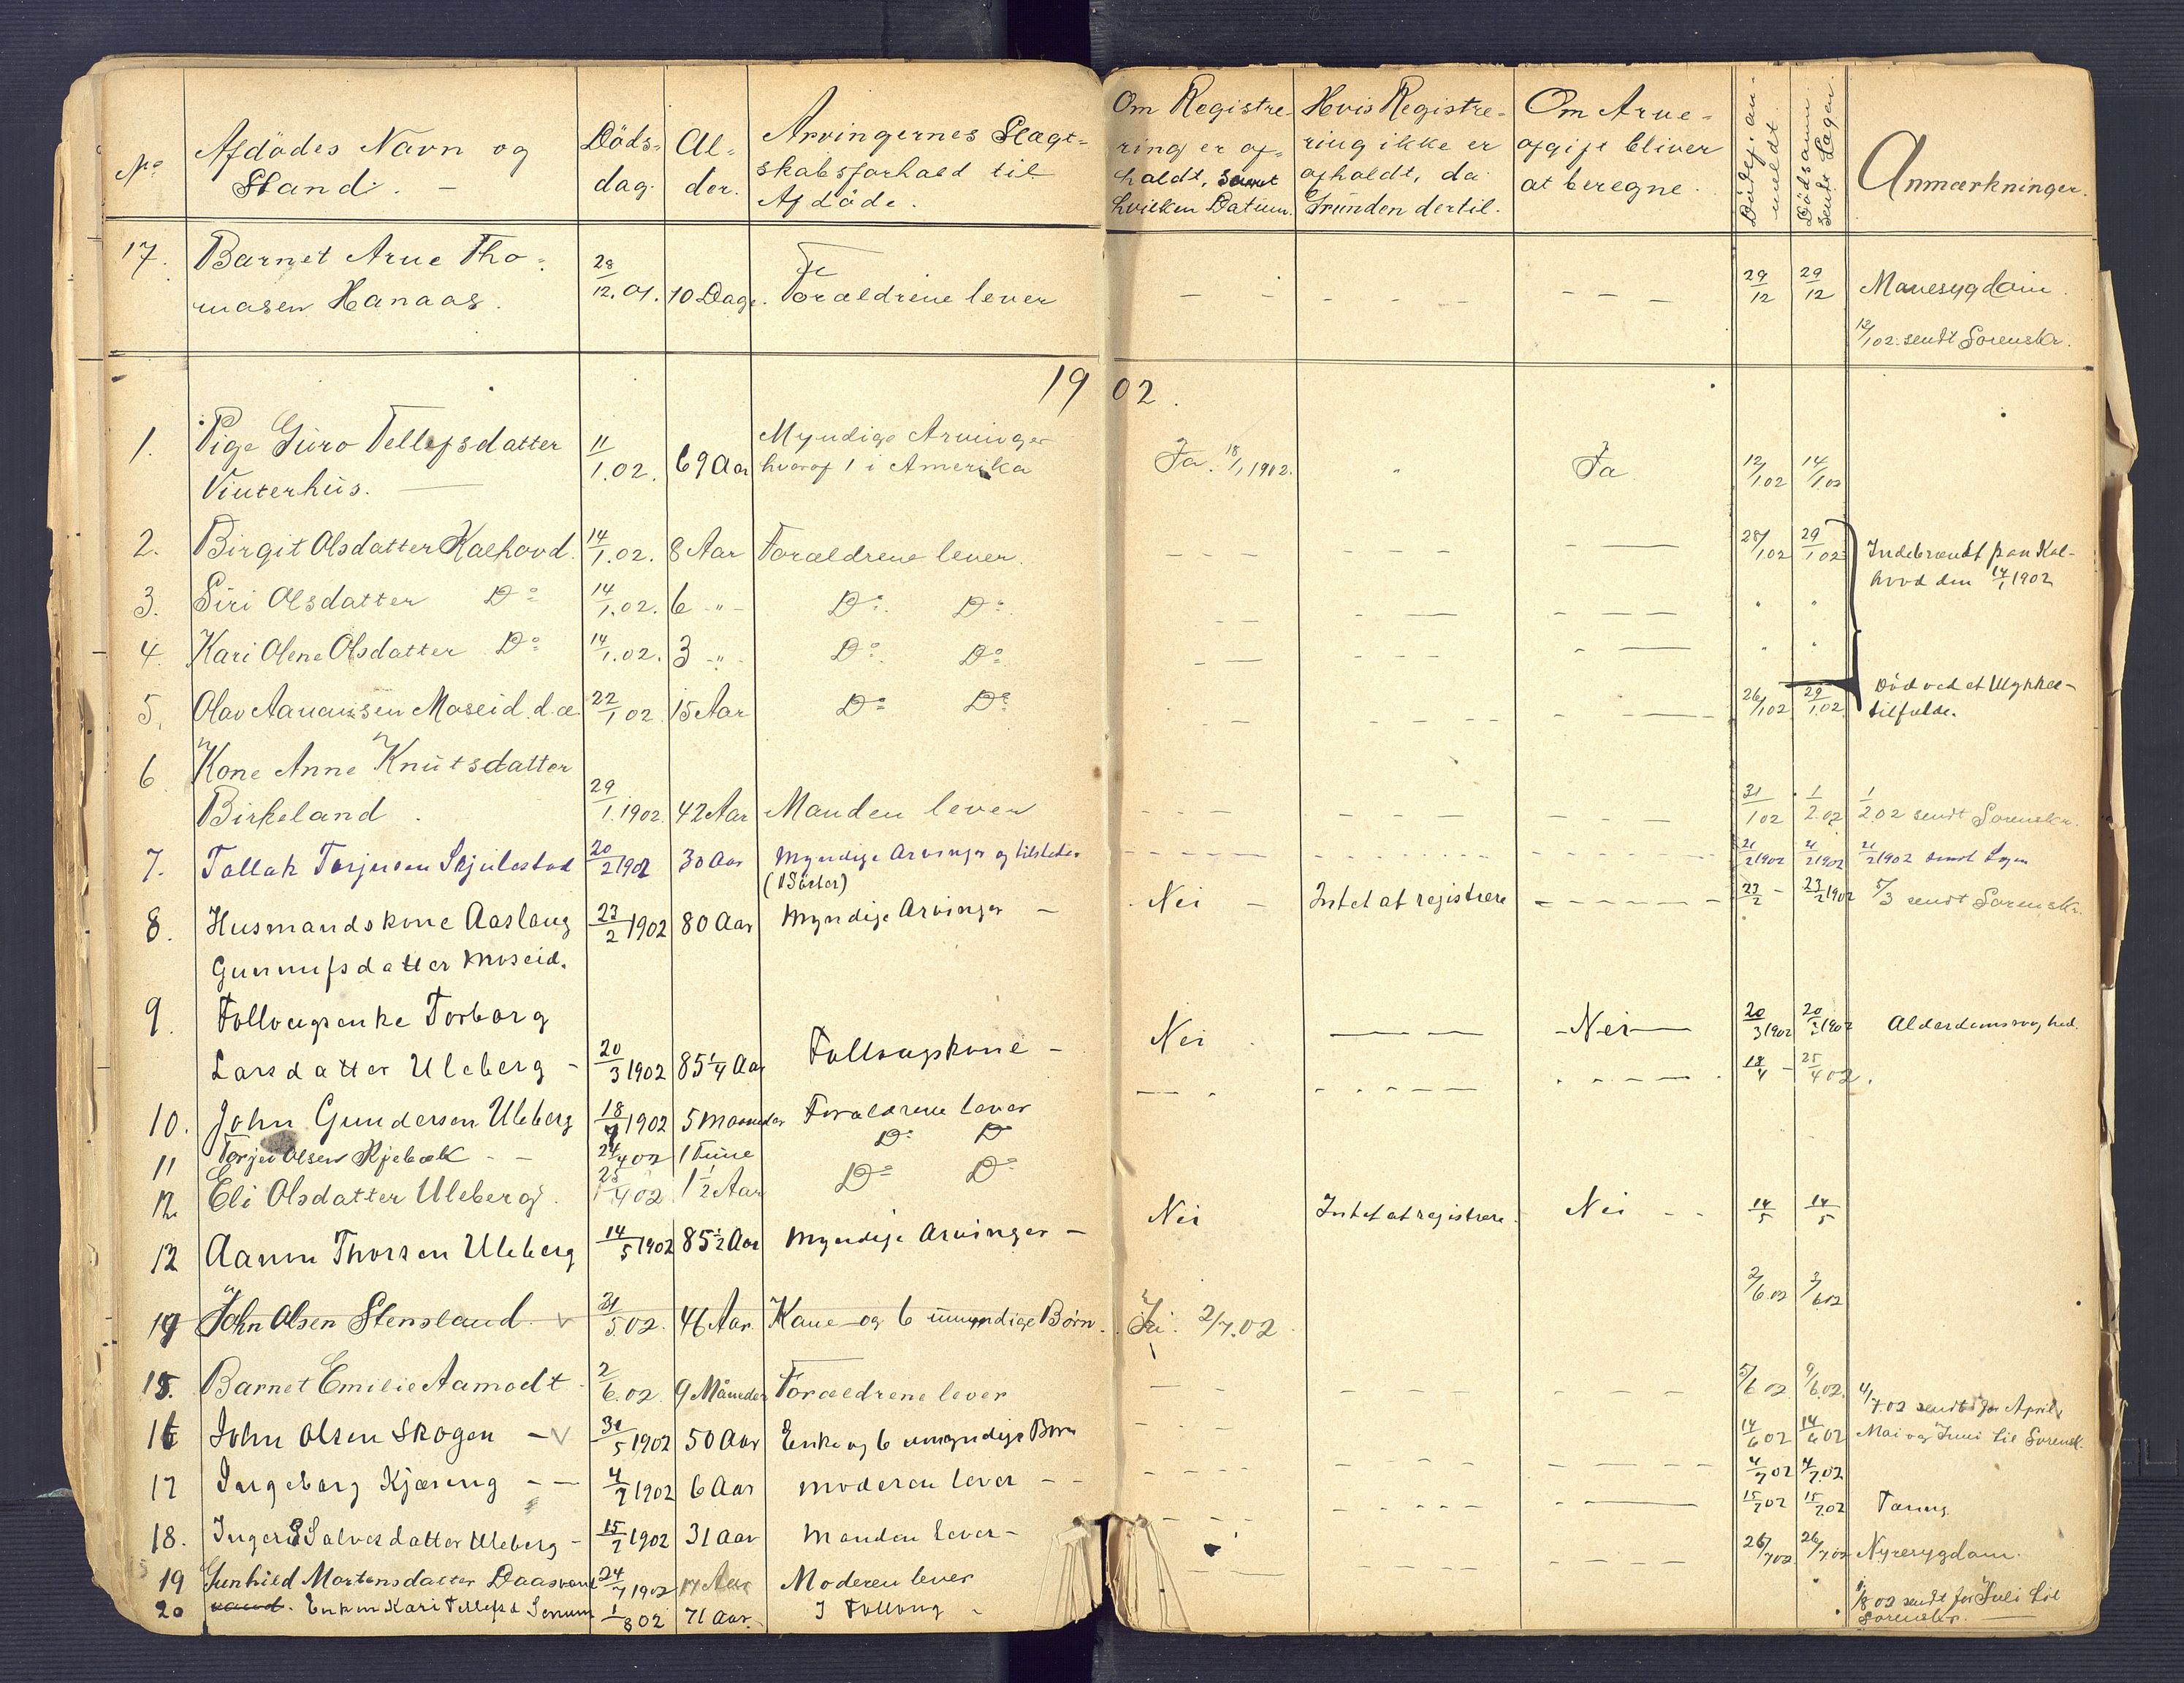 No
Afdödes Navn og
Stand. —
Döds-
dag.
Al-
der.
Arvingernes Slægt-
skabsforhold til
Afdöde.
Om Registre-
ring er af-
holdt, samt
hvilken Datum.
Hvis Registre-
ring ikke er
afholdt, da
Grunden dertil.
Om Arve-
afgift bliver
at beregne.
Dödsf. an-
meldt.
Dödsanm.
sendt Lagen.
Anmærkninger.
17. Barnet Arve Tho-
masen Hanaas. 28/12.01. 10 Dage. Forældrene lever — — — — — — — — — 29/12 29/12 Mavesygdom
12/1 02. sendt Sorenskr.
1902.
1. Pige Guro Tellefsdatter Myndige Arvinger
Vinterhus. — 11/1.02. 69 Aar hvoraf 1 i Amerika Ja. 18/1 1902. " Ja 12/1.02 14/1.02
2. Birgit Olsdatter Kalhovd. 14/1.02. 8 Aar Forældrene lever. — — — — — — - — 28/1 02 29/1 02 Indebrændt paa Kal-
hovd den 14/1 1902
3. Siri Olsdatter Do 14/1.02. 6 -"- Do. Do. " "
4. Kari Olene Olsdatter Do 14/1.02. 3 -"- Do. Do. " "
5. Olav Aanensen Moseid. d.æ. 22/1 02 15 Aar Do Do 26/1 02 29/1.02 Död ved et Ulykkes-
tilfælde.
6 Kone Anne Knutsdatter
Birkeland. 29/1.1902. 42 Aar Manden lever 31/1 02 1/2.02 1/2 02 sendt Sorenskr.
7. Tallak Terjesen Skjulestad 20/2 1902 30 Aar Myndige Arvinger og tilstede 21/2 1902 21/2 1902 21/2 1902 sendt Lagen
(1 Söster)
8. Husmandskone Aaslaug 22/2 1902 80 Aar Myndige Arvinger — Nei — Intet at registrere 22/2 — 23/2 1902 5/3 sendt Sorenskr.
Gunnufsdatter Moseid.
9. Follougsenke Torborg
Larsdatter Uleberg — 20/3 1902 85 1/4 Aar Follougskone — Nei — — - Nei — 20/3 1902 20/3 1902 Alderdomssvaghed.
10. John Gundersen Uleberg 18/4 1902 5 Maaneder Forældrene lever 18/4 — 25/4 02.
11 Terjei Olsen Kjebæk - - 24/4 02 1 Time Do Do
12. Eli Olsdatter Uleberg. 25/4 02 1 1/2 Aar Do Do
13 Aanon Thorsen Uleberg 14/5 1902 85 1/2 Aar Myndige Arvinger — Nei Intet at registrere. Nei - - 14/5 14/5
14 John Olsen Stensland. v 31/5 02. 46 Aar. Kone og 6 umyndige Börn. Ja. 2/7.02 2/6.02 3/6 02
15. Barnet Emilie Aamodt 2/6.02 9 Måneder Forældrene lever 5/6 02 9/6.02. 4/7.02 sendt for April,
16 John Olsen Skogen — v 31/5 1902 50 Aar Enke og 6 umyndige Börn 14/6 02 14/6 02 Mai og Juni til Sorensk.
17 Ingeborg Kjæreng - — 4/7 1902 6 Aar Moderen lever - - 4/7 02 4/7 02
18. Inger S Salvesdatter Uleberg - 15/7 1902 31 Aar Manden lever - 15/7 02 15/7.02 Tæring
19 Gunhild Mortensdatter Daasvand 24/7 1902 17 Aar Moderen lever 26/7 02 26/7 02 Nyresygdom.
20 Enken Kari Tellefsd 1/8 02 71 Aar. I Folloug - 1/8 02 sendt for Juli til
Sorenskr. —